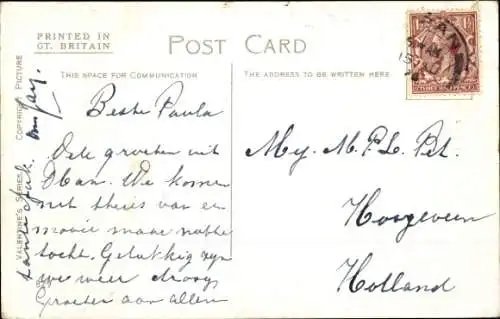 PRINTED IN
GT. BRITAIN
POST CARD
THIS SPACE FOR COMMUNICATION
THE ADDRESS TO BE WRITTEN HERE
VALENTINE'S SERIES
COPYRIGHT PICTURE
Beste Paula
Vele groeten uit
Oban. We komen
net thuis van een
mooie maar natte
tocht. Gelukkig zyn
we weer droog
Groeten aan allen
tante
Mej. M.P.L. Pet.
Hoogeveen
Holland